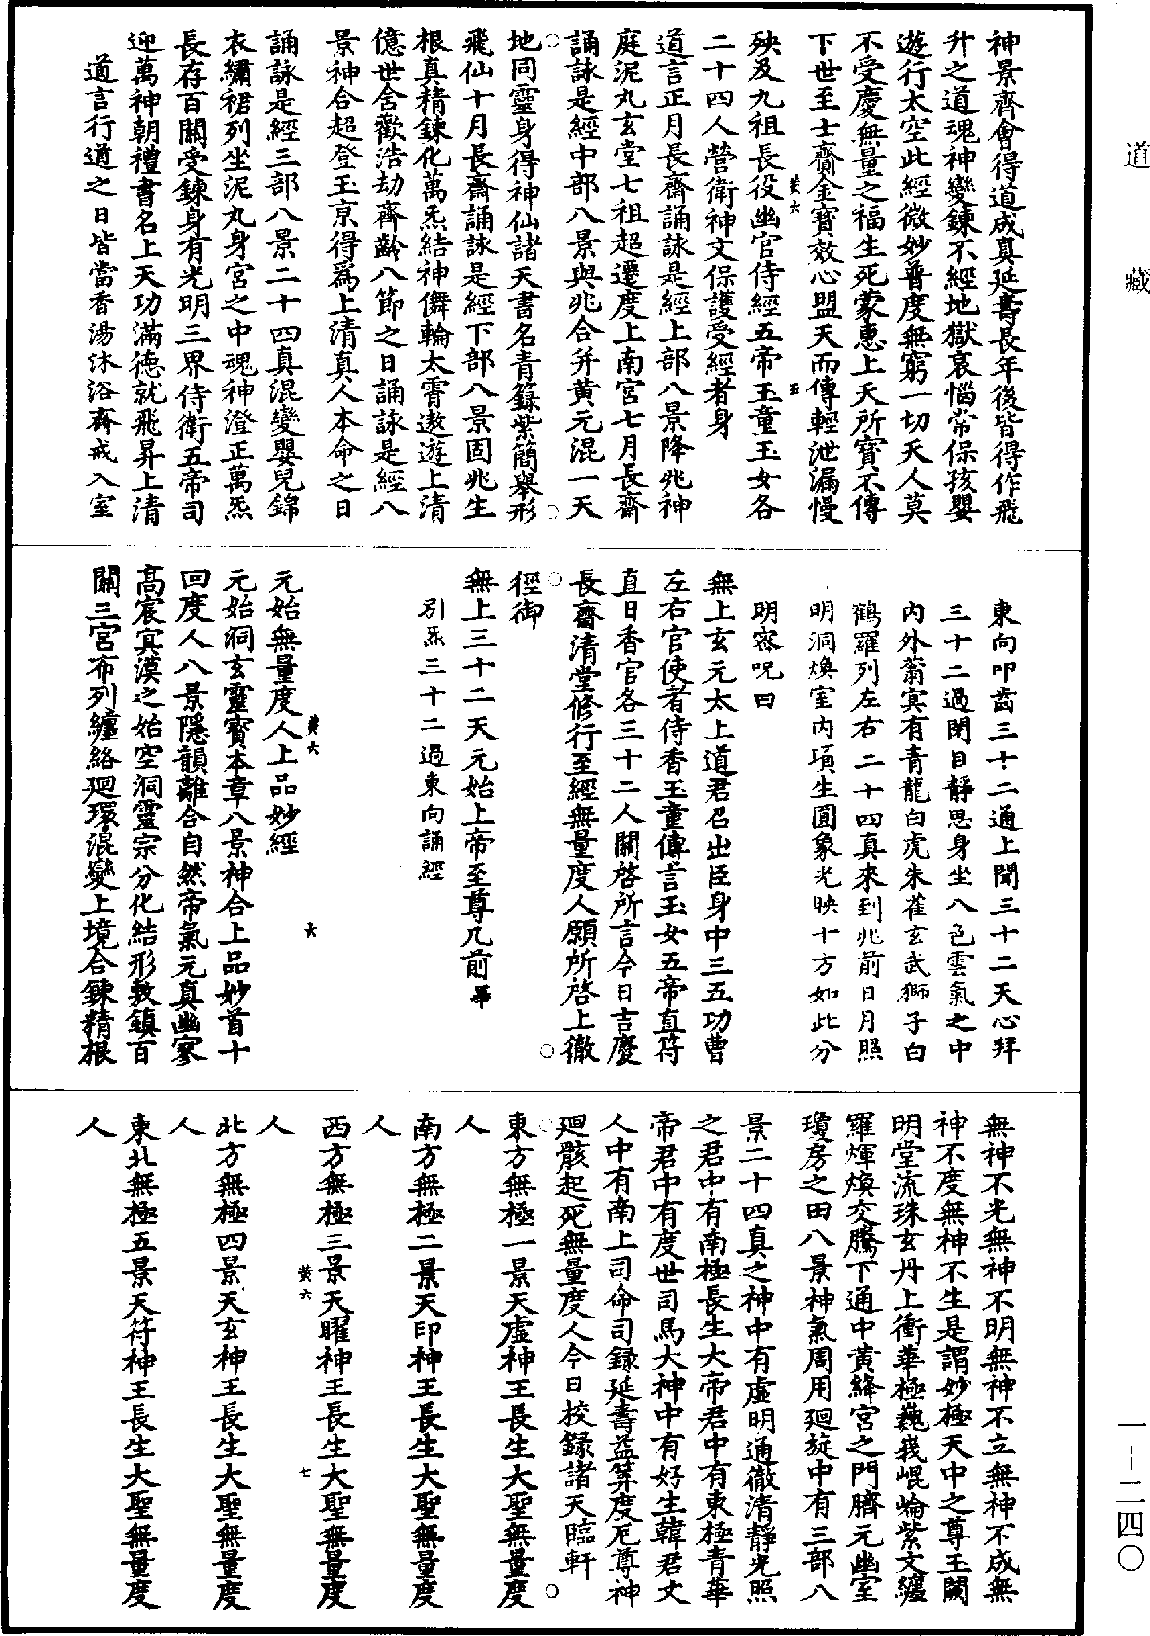 道藏
神景齊會得道成真延壽長年後皆得作飛
升之道魂神變鍊不經地獄哀惱常保孩嬰
遊行太空此經微妙普度無窮一切天人莫
不受慶無量之福生死蒙惠上天所寶不傳
下世至士齎金寶效心盟天而傳輕泄漏慢
黃六 五
殃及九祖長役幽官侍經五帝玉童玉女各
二十四人營衛神文保護受經者身
道言正月長齋誦詠是經上部八景降兆神
庭泥丸玄堂七祖超遷度上南宮七月長齋
誦詠是經中部八景與兆合并黃元混一天
地同靈身得神仙諸天書名青籙紫簡舉形
飛仙十月長齋誦詠是經下部八景固兆生
根真精鍊化萬炁結神儛輪太霄遨遊上清
億世含歡浩劫齊齡八節之日誦詠是經八
景神合超登玉京得爲上清真人本命之日
誦詠是經三部八景二十四真混變嬰兒錦
衣繡裙列坐泥丸身宮之中魂神澄正萬炁
長存百關受鍊身有光明三界侍衛五帝司
迎萬神朝禮書名上天功滿德就飛昇上清
道言行道之日皆當香湯沐浴齋戒入室
東向叩齒三十二通上聞三十二天心拜
三十二過閉目靜思身坐八色雲氣之中
內外蓊冥有青龍白虎朱雀玄武獅子白
鶴羅列左右二十四真來到兆前日月照
明洞煥室內項生圓象光映十方如此分
明密呪曰
無上玄元太上道君召出臣身中三五功曹
左右官使者侍香玉童傳言玉女五帝直符
直日香官各三十二人關啓所言今日吉慶
長齋清堂修行至經無量度人願所啓上徹
徑御
無上三十二天元始上帝至尊几前畢
引炁三十二過東向誦經
黃六 六
元始無量度人上品妙經
元始洞玄靈寶本章八景神合上品妙首十
回度人八景隱韻離合自然帝氣元真幽寥
高宸冥漠之始空洞靈宗分化結形敷鎮百
關三宮布列纏絡廻環混變上境合鍊精根
無神不光無神不明無神不立無神不成無
神不度無神不生是謂妙極天中之尊玉闕
明堂流珠玄丹上衝華極巍峩崐崘紫文纏
羅煇煥交騰下通中黃絳宮之門臍元幽室
瓊房之田八景神氣周用廻旋中有三部八
景二十四真之神中有虛明通徹清靜光照
之君中有南極長生大帝君中有東極青華
帝君中有度世司馬大神中有好生韓君丈
人中有南上司命司錄延壽益筭度厄尊神
廻骸起死無量度人今日校錄諸天臨軒
東方無極一景天虛神王長生大聖無量度
人
南方無極二景天印神王長生大聖無量度
人
西方無極三景天曜神王長生大聖無量度
人
黃六 七
北方無極四景天玄神王長生大聖無量度
人
東北無極五景天符神王長生大聖無量度
人
一-二四〇